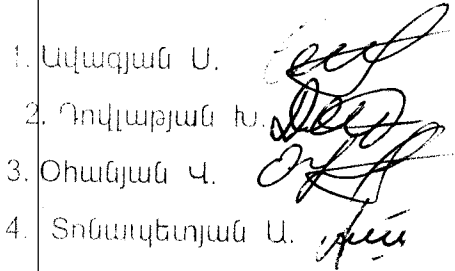 1. Ավագյան Ս.
2. Դովլաթյան Խ.
3. Օհանյան Վ.
4. Տոնապետյան Ա.